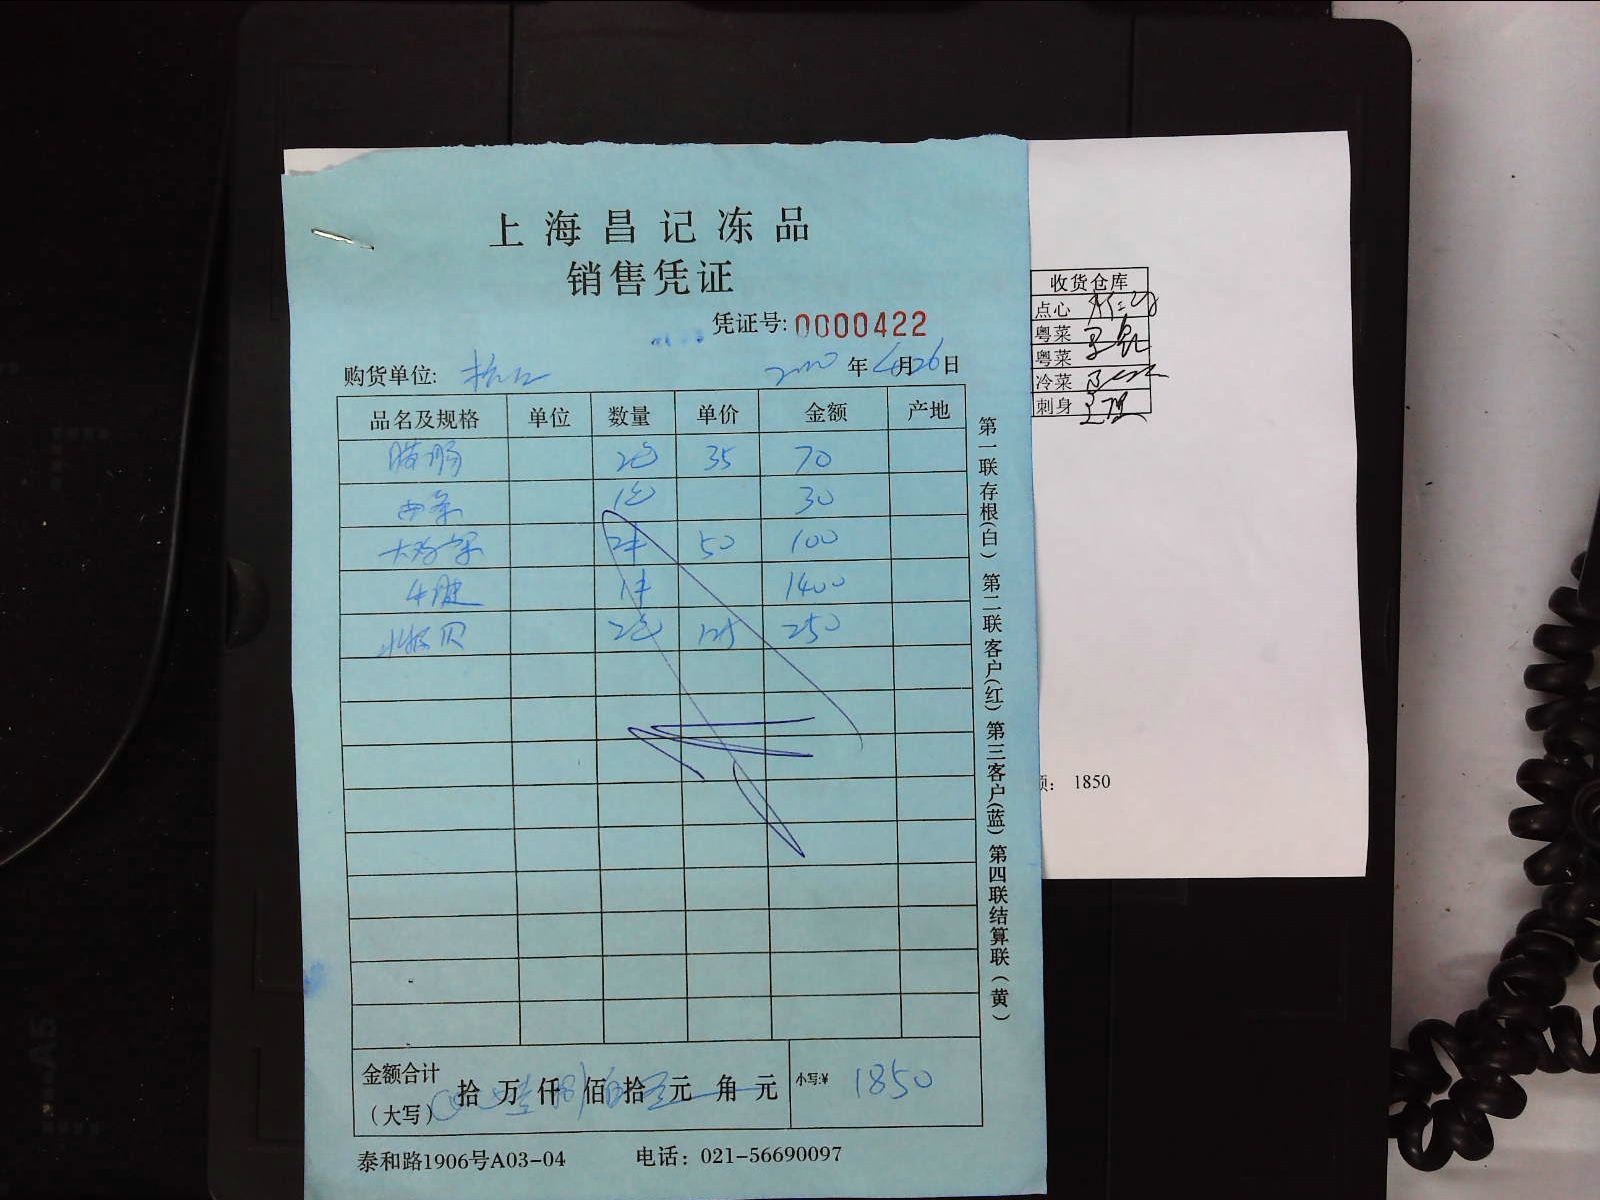 上海昌记冻品
销售凭证
凭证号: 0000422
购货单位: 年4月26日
品名及规格 单位 数量 单价 金额 产地
腊肠 2包 35 70
西柔 1包 30
2件 50 100
牛腱 1件 1400
北极贝 2包 125 250
金额合计
(大写) 拾 万 仟 佰 拾 元 角 元 小写:¥ 1850
泰和路1906号A03-04 电话: 021-56690097
第一联存根(白) 第二联客户(红) 第三客户(蓝) 第四联结算联(黄)
收货仓库
点心
粤菜
粤菜
冷菜
刺身
: 1850
A5